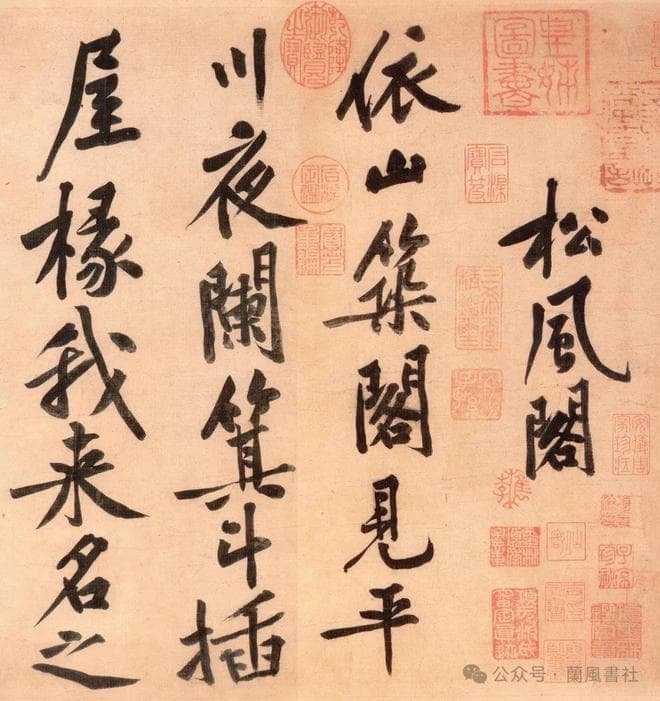 松風閣
依山築閣見平
川夜闌箕斗插
屋椽我来名之
公众号·蘭風書社